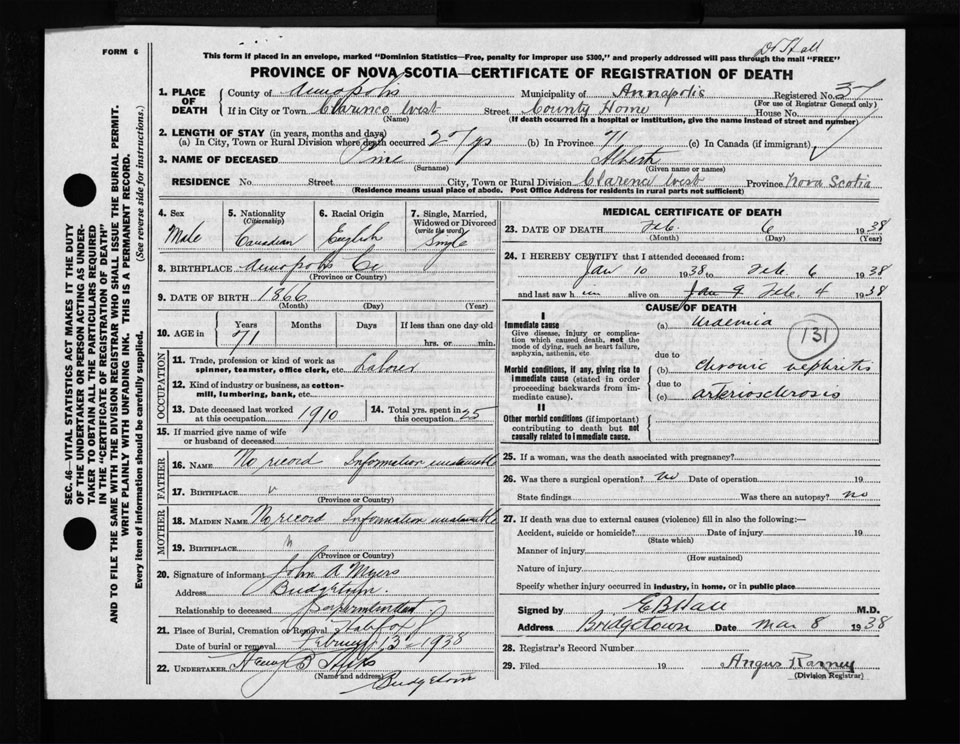 Dr Hall
FORM 6
This form if placed in an envelope, marked "Dominion Statistics—Free, penalty for improper use $300," and properly addressed will pass through the mail "FREE"
PROVINCE OF NOVA SCOTIA—CERTIFICATE OF REGISTRATION OF DEATH
1. PLACE OF DEATH County of Annapolis Municipality of Annapolis Registered No. 37
(For use of Registrar General only)
If in City or Town Clarence West Street County Home House No.
(Name) (If death occurred in a hospital or institution, give the name instead of street and number)
2. LENGTH OF STAY (in years, months and days)
(a) In City, Town or Rural Division where death occurred 27 yrs (b) In Province 71 (c) In Canada (if immigrant)
3. NAME OF DECEASED Pine Albert
(Surname) (Given name or names)
RESIDENCE No. Street City, Town or Rural Division Clarence West Province Nova Scotia
(Residence means usual place of abode. Post Office Address for residents in rural parts not sufficient)
4. Sex Male
5. Nationality (Citizenship) Canadian
6. Racial Origin English
7. Single, Married, Widowed or Divorced (write the word) Single
8. BIRTHPLACE Annapolis Co
(Province or Country)
9. DATE OF BIRTH 1866
(Month) (Day) (Year)
10. AGE in Years Months Days If less than one day old
71 hrs. or min.
OCCUPATION
11. Trade, profession or kind of work as spinner, teamster, office clerk, etc. Laborer
12. Kind of industry or business, as cotton-mill, lumbering, bank, etc.
13. Date deceased last worked at this occupation 1910
14. Total yrs. spent in this occupation 25
15. If married give name of wife or husband of deceased
FATHER
16. NAME No record Information unobtainable
17. BIRTHPLACE "
(Province or Country)
MOTHER
18. MAIDEN NAME No record Information unobtainable
19. BIRTHPLACE "
(Province or Country)
20. Signature of informant John A Myers
Address Bridgetown
Relationship to deceased Superintendent
21. Place of Burial, Cremation or Removal Halifax
Date of burial or removal February 13 1938
22. UNDERTAKER Henry B Hicks
(Name and address) Bridgetown
MEDICAL CERTIFICATE OF DEATH
23. DATE OF DEATH Feb. 6 1938
(Month) (Day) (Year)
24. I HEREBY CERTIFY that I attended deceased from:
Jan 10 1938 to Feb. 6 1938
and last saw him alive on Jan 9 Feb. 4 1938
CAUSE OF DEATH
I
Immediate cause (a) Uraemia 131
Give disease, injury or complication which caused death, not the mode of dying, such as heart failure, asphyxia, asthenia, etc
due to
Morbid conditions, if any, giving rise to immediate cause (stated in order proceeding backwards from immediate cause). (b) chronic nephritis
due to
(c) arteriosclerosis
II
Other morbid conditions (if important) contributing to death but not causally related to immediate cause.
25. If a woman, was the death associated with pregnancy?
26. Was there a surgical operation? no Date of operation 19
State findings Was there an autopsy? no
27. If death was due to external causes (violence) fill in also the following:—
Accident, suicide or homicide? Date of injury 19
(State which)
Manner of injury
(How sustained)
Nature of injury
Specify whether injury occurred in industry, in home, or in public place
Signed by E B Hall M.D.
Address Bridgetown Date Mar 8 1938
28. Registrar's Record Number
29. Filed 19 Angus Ramey
(Division Registrar)
SEC. 46—VITAL STATISTICS ACT MAKES IT THE DUTY
OF THE UNDERTAKER OR PERSON ACTING AS UNDER-
TAKER TO OBTAIN ALL THE PARTICULARS REQUIRED
IN THE "CERTIFICATE OF REGISTRATION OF DEATH"
AND TO FILE THE SAME WITH THE DIVISION REGISTRAR WHO SHALL ISSUE THE BURIAL PERMIT.
WRITE PLAINLY WITH UNFADING INK. THIS IS A PERMANENT RECORD.
Every item of information should be carefully supplied. (See reverse side for instructions.)